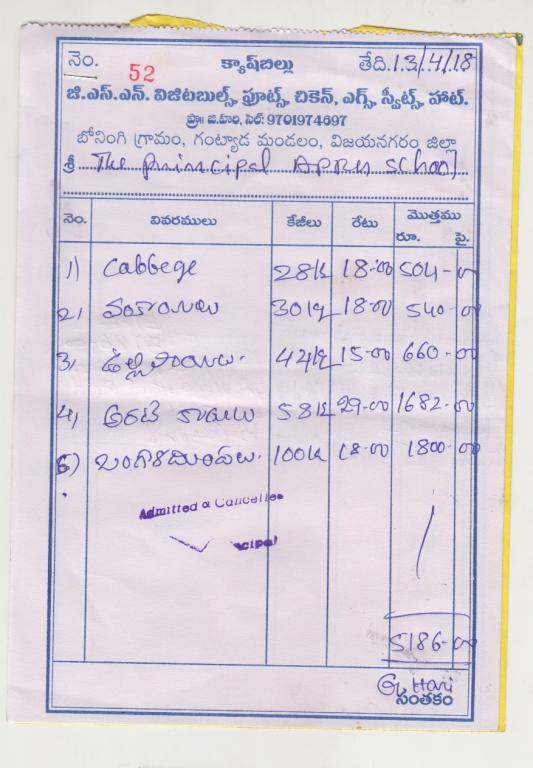 నెం. 52 క్యాష్‌బిల్లు తేది.13/4/18
జి.ఎస్.ఎన్. విజిటబుల్స్, ఫ్రూట్స్, చికెన్, ఎగ్స్, స్వీట్స్, హాట్.
ప్రొ: జి.హరి, సెల్: 9701974697
బోనంగి గ్రామం, గంట్యాడ మండలం, విజయనగరం జిల్లా
శ్రీ The principal APRJ school
నెం. వివరములు కేజీలు రేటు మొత్తము
రూ. పై.
1) Cabbege 28k 18-00 504-00
2, వంకాయలు 30kg 18-00 540-00
3, ఉల్లిపాయలు. 44kg 15-00 660-00
4, అరటి కాయలు 58k 29-00 1682-00
5) బంగాళదుంపలు. 100k 18-00 1800-00
Admitted & Cancelled
cipal
5186-00
G. Hari
సంతకం